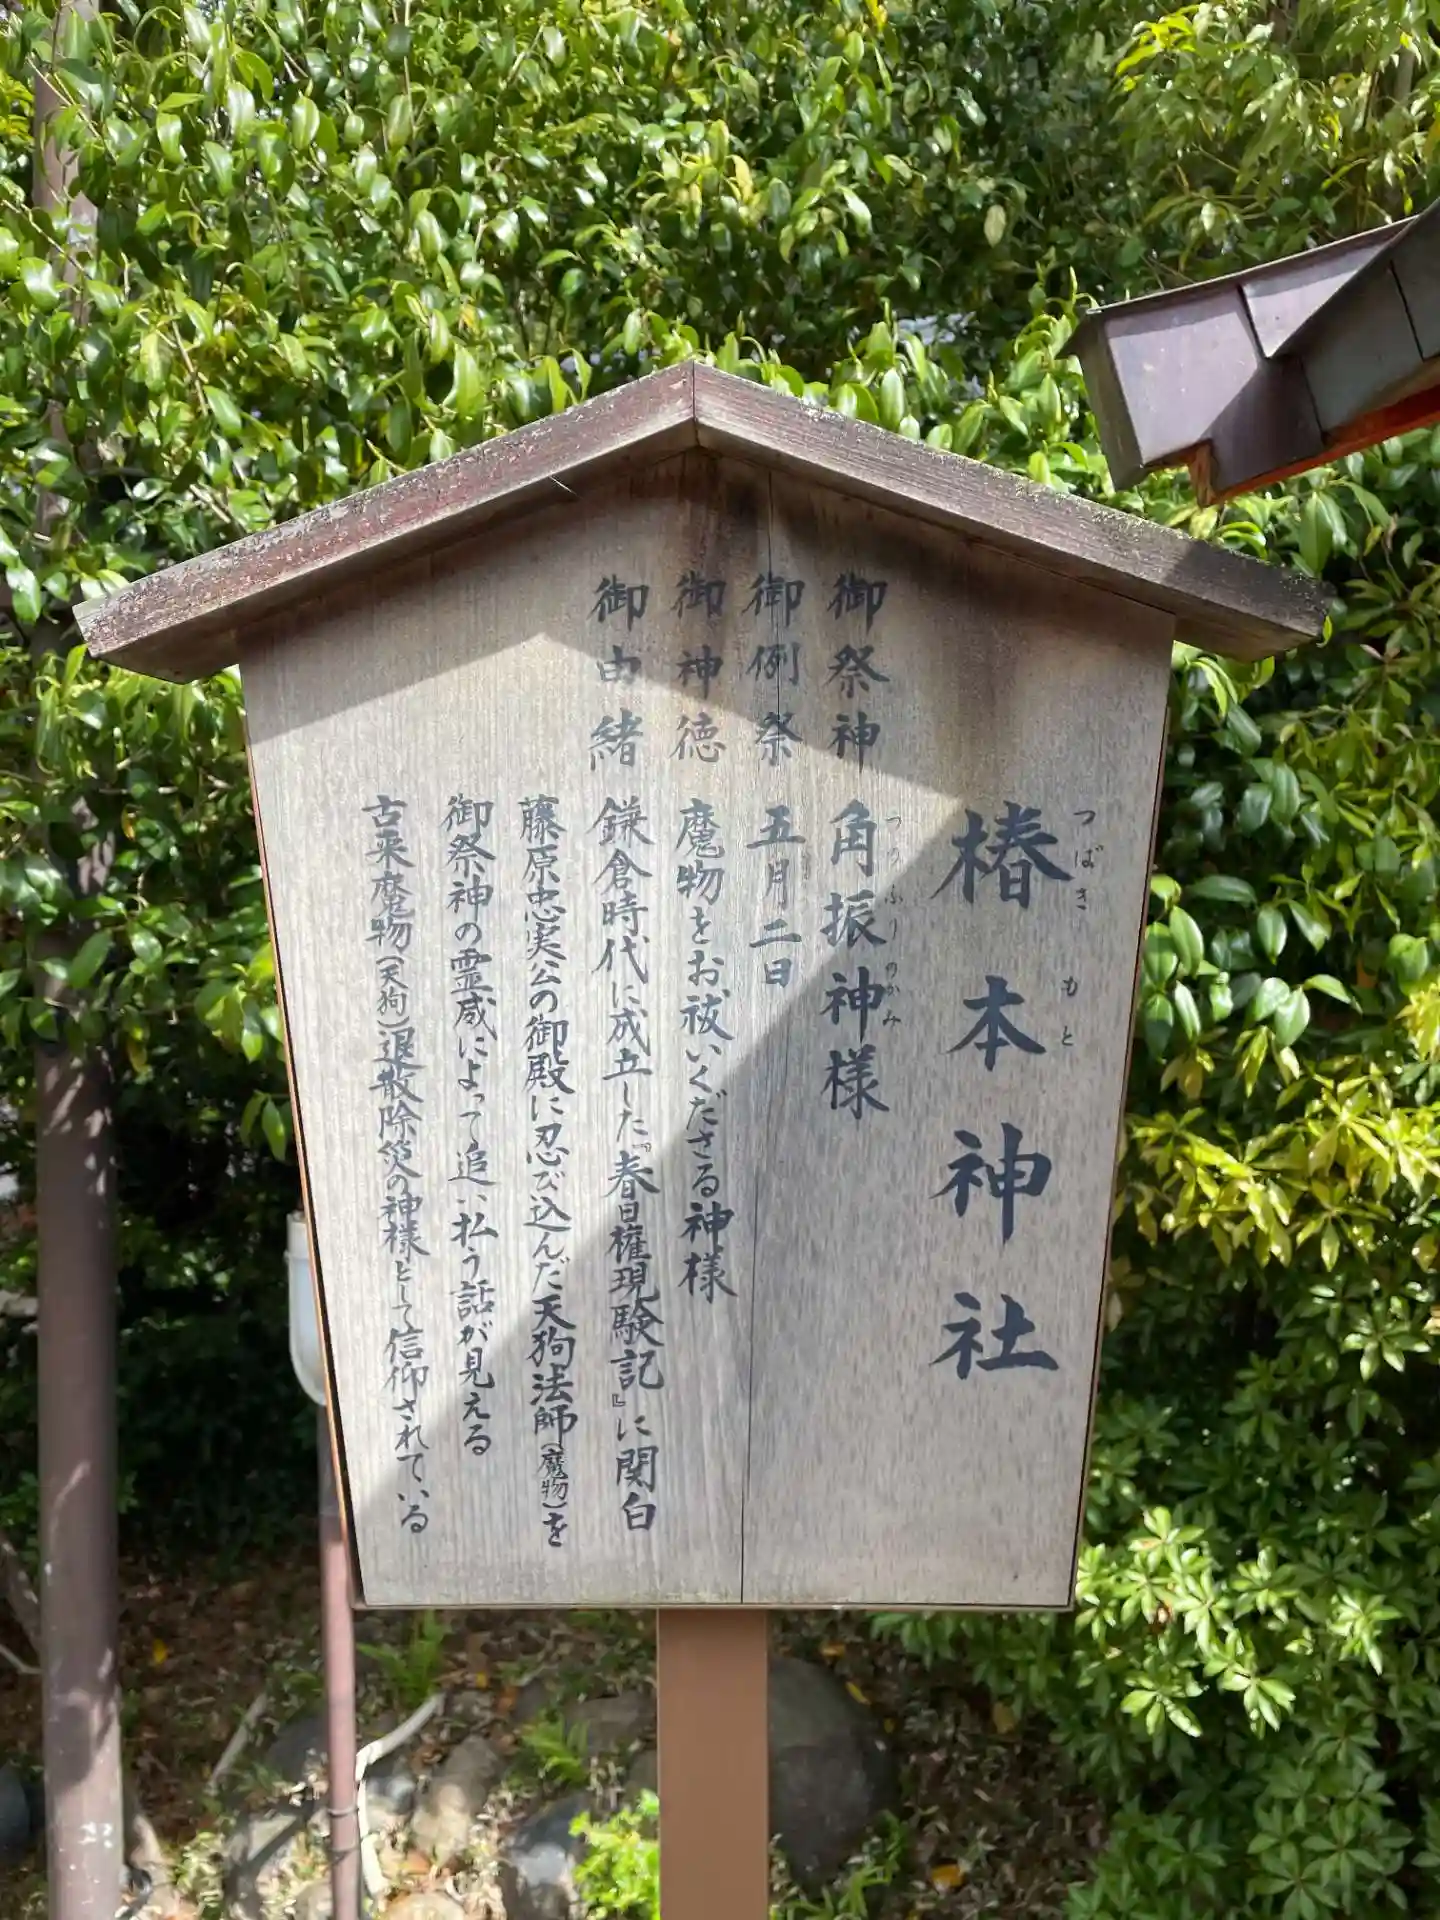 椿本神社
つばきもと
御祭神 角振神様
つのふりのかみ
御例祭 五月二日
御神徳 魔物をお祓いくださる神様
御由緒 鎌倉時代に成立した『春日権現験記』に関白
藤原忠実公の御殿に忍び込んだ天狗法師(魔物)を
御祭神の霊威によって追い払う話が見える
古来魔物(天狗)退散除災の神様として信仰されている